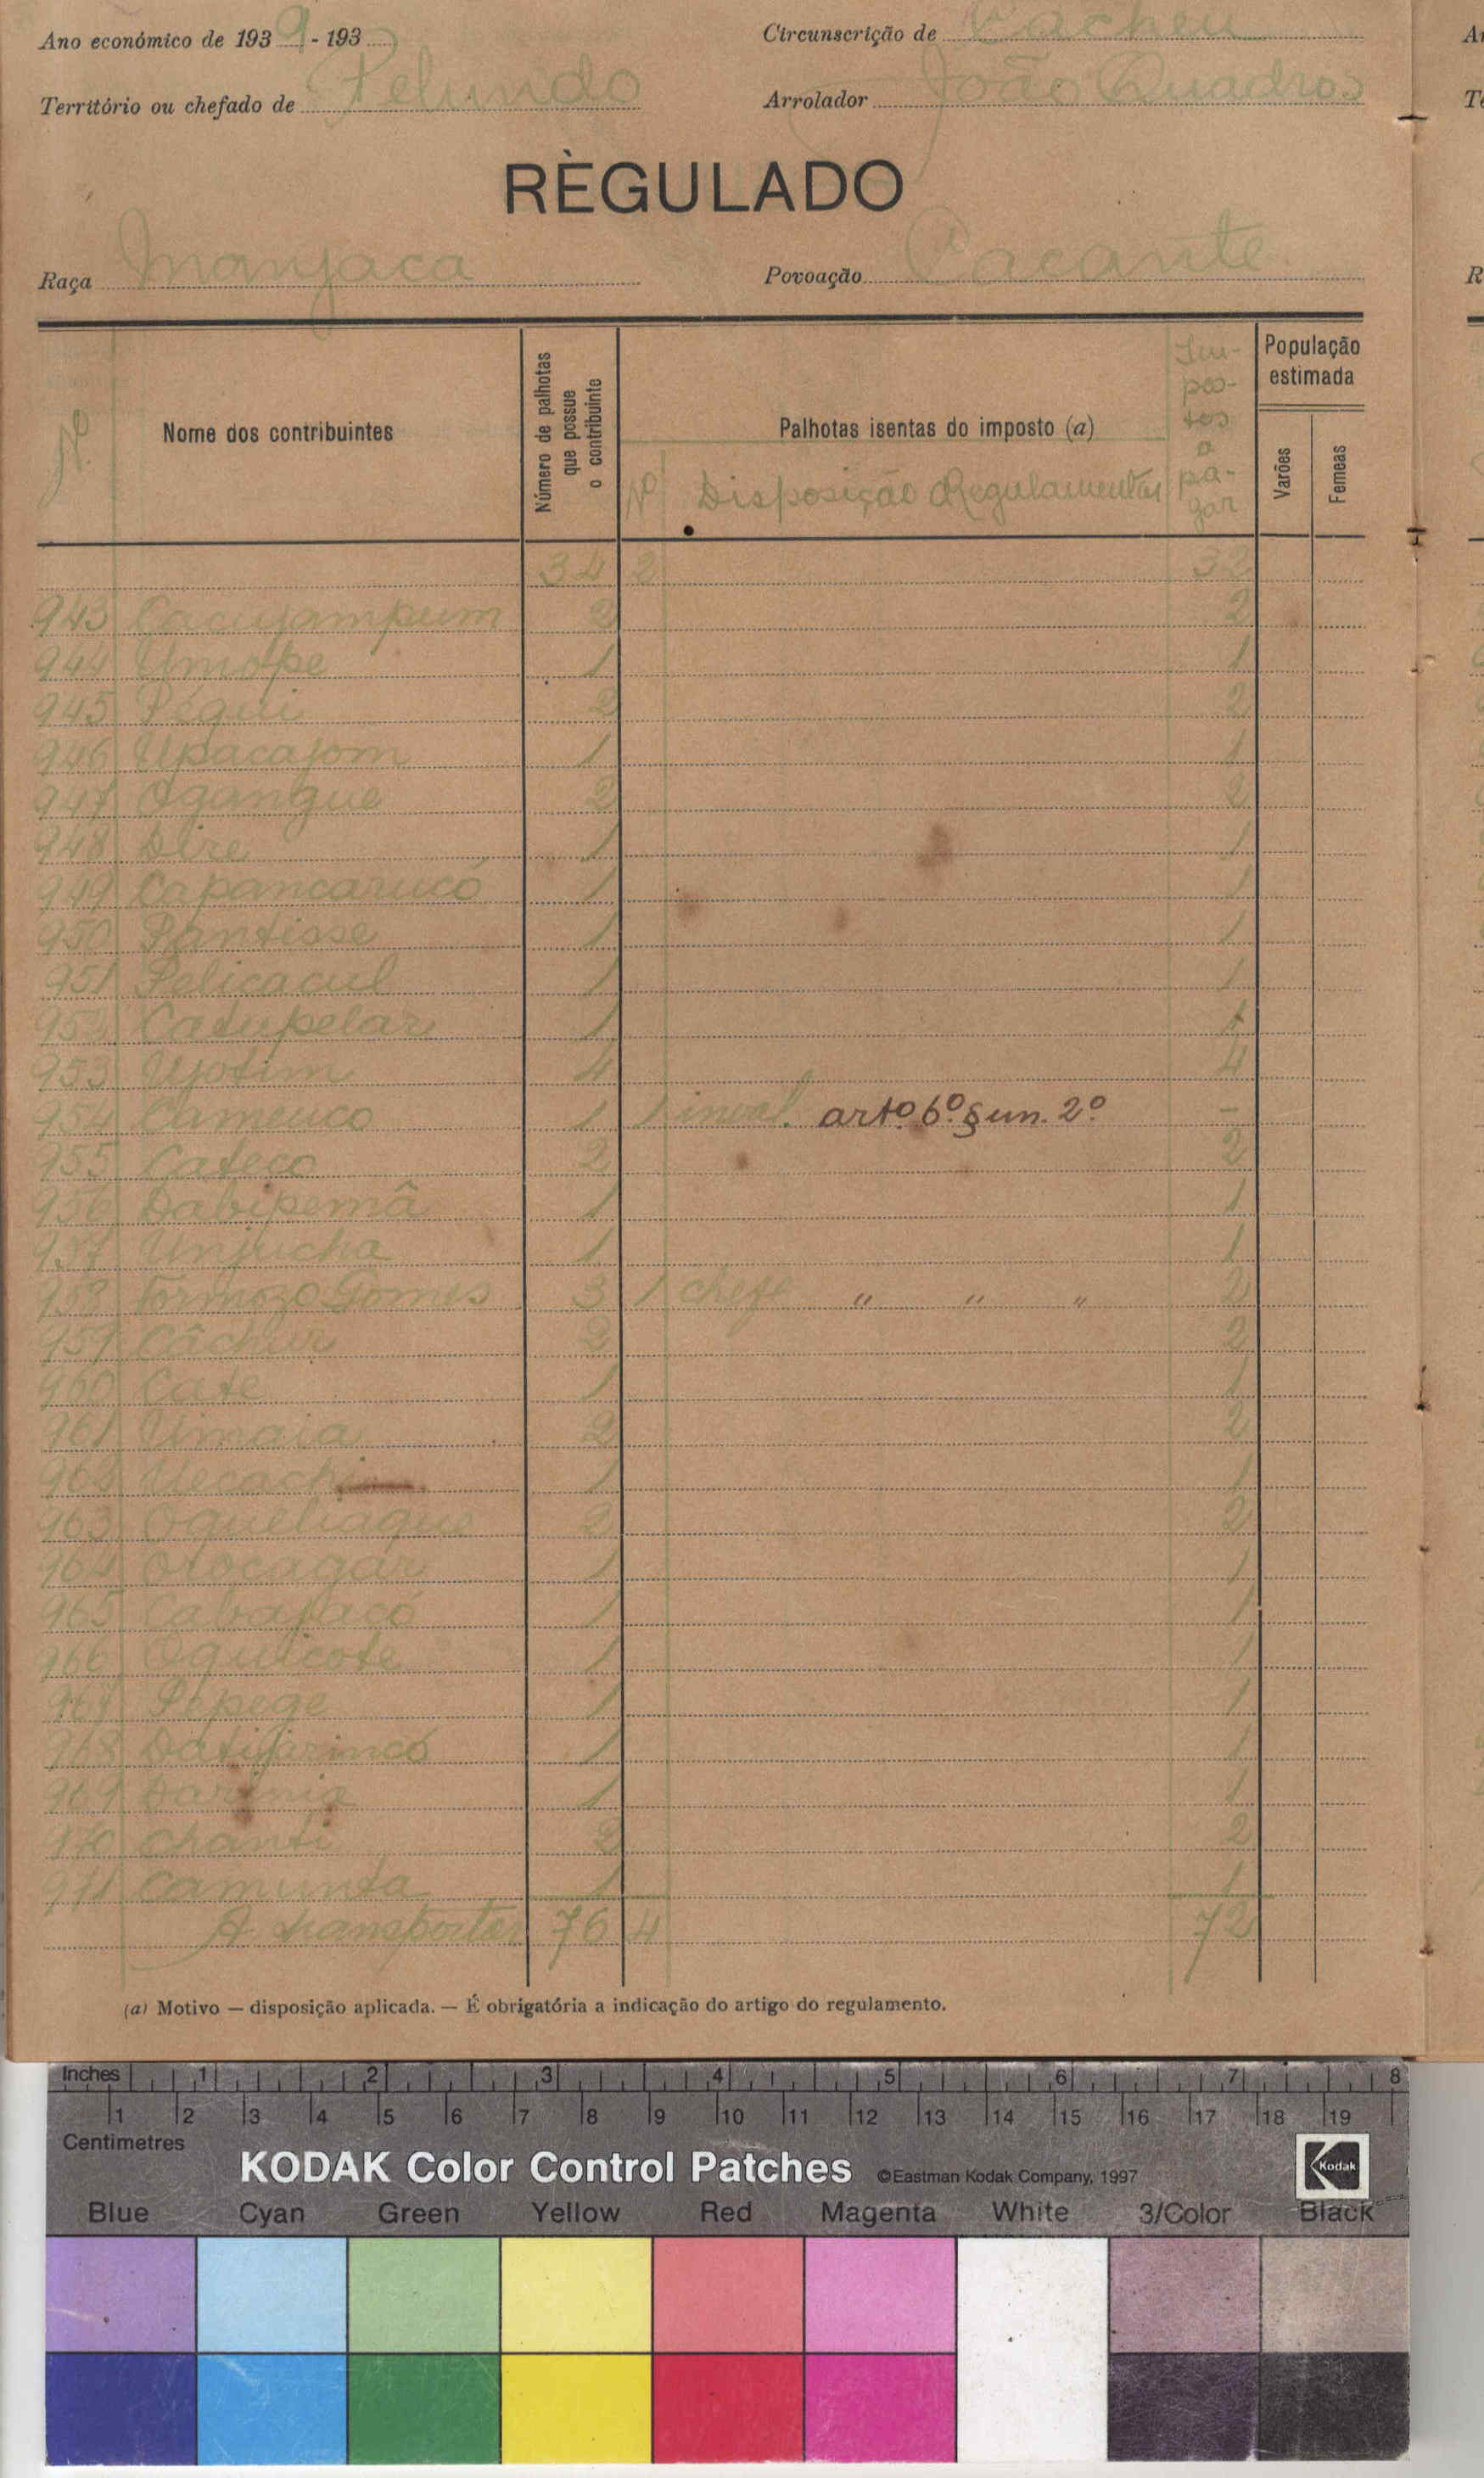 Ano económico de 1939-193
Circunscrição de Cacheu
Território ou chefado de Pelundo
Arrolador João Quadros
RÈGULADO
Raça Manjaca
Povoação Cacante
Nº
Nome dos contribuintes
Número de palhotas que possue o contribuinte
Palhotas isentas do imposto (a)
Nº Disposição Regulamentar
Impostos a pagar
População estimada
Varões
Femeas
34 2 32
943 Cacujampum 2 2
944 Umope 1 1
945 Pégui 2 2
946 Upacajom 1 1
947 Ogangue 2 2
948 Dire 1 1
949 Capancarucó 1 1
950 Pantisse 1 1
951 Pelicacul 1 1
952 Catupelar 1 1
953 Ujotim 4 4
954 Cameuco 1 1 inval. artº 6º § un. 2º -
955 Cateco 2 2
956 Dabipemâ 1 1
957 Unjucha 1 1
958 Formozo Gomes 3 1 chefe " " " 2
959 2 2
960 Cate 1 1
961 Umaia 2 2
962 1 1
963 Oqueliaque 2 2
964 Otocagar 1 1
965 Cabajacó 1 1
966 Oquicote 1 1
967 Pepege 1 1
968 Datijarincó 1 1
969 1 1
970 Chanti 2 2
971 Camunta 1 1
A transportar 76 4 72
(a) Motivo — disposição aplicada. — É obrigatória a indicação do artigo do regulamento.
Inches 1 2 3 4 5 6 7 8
1 2 3 4 5 6 7 8 9 10 11 12 13 14 15 16 17 18 19
Centimetres
KODAK Color Control Patches ©Eastman Kodak Company, 1997 Kodak
Blue Cyan Green Yellow Red Magenta White 3/Color Black